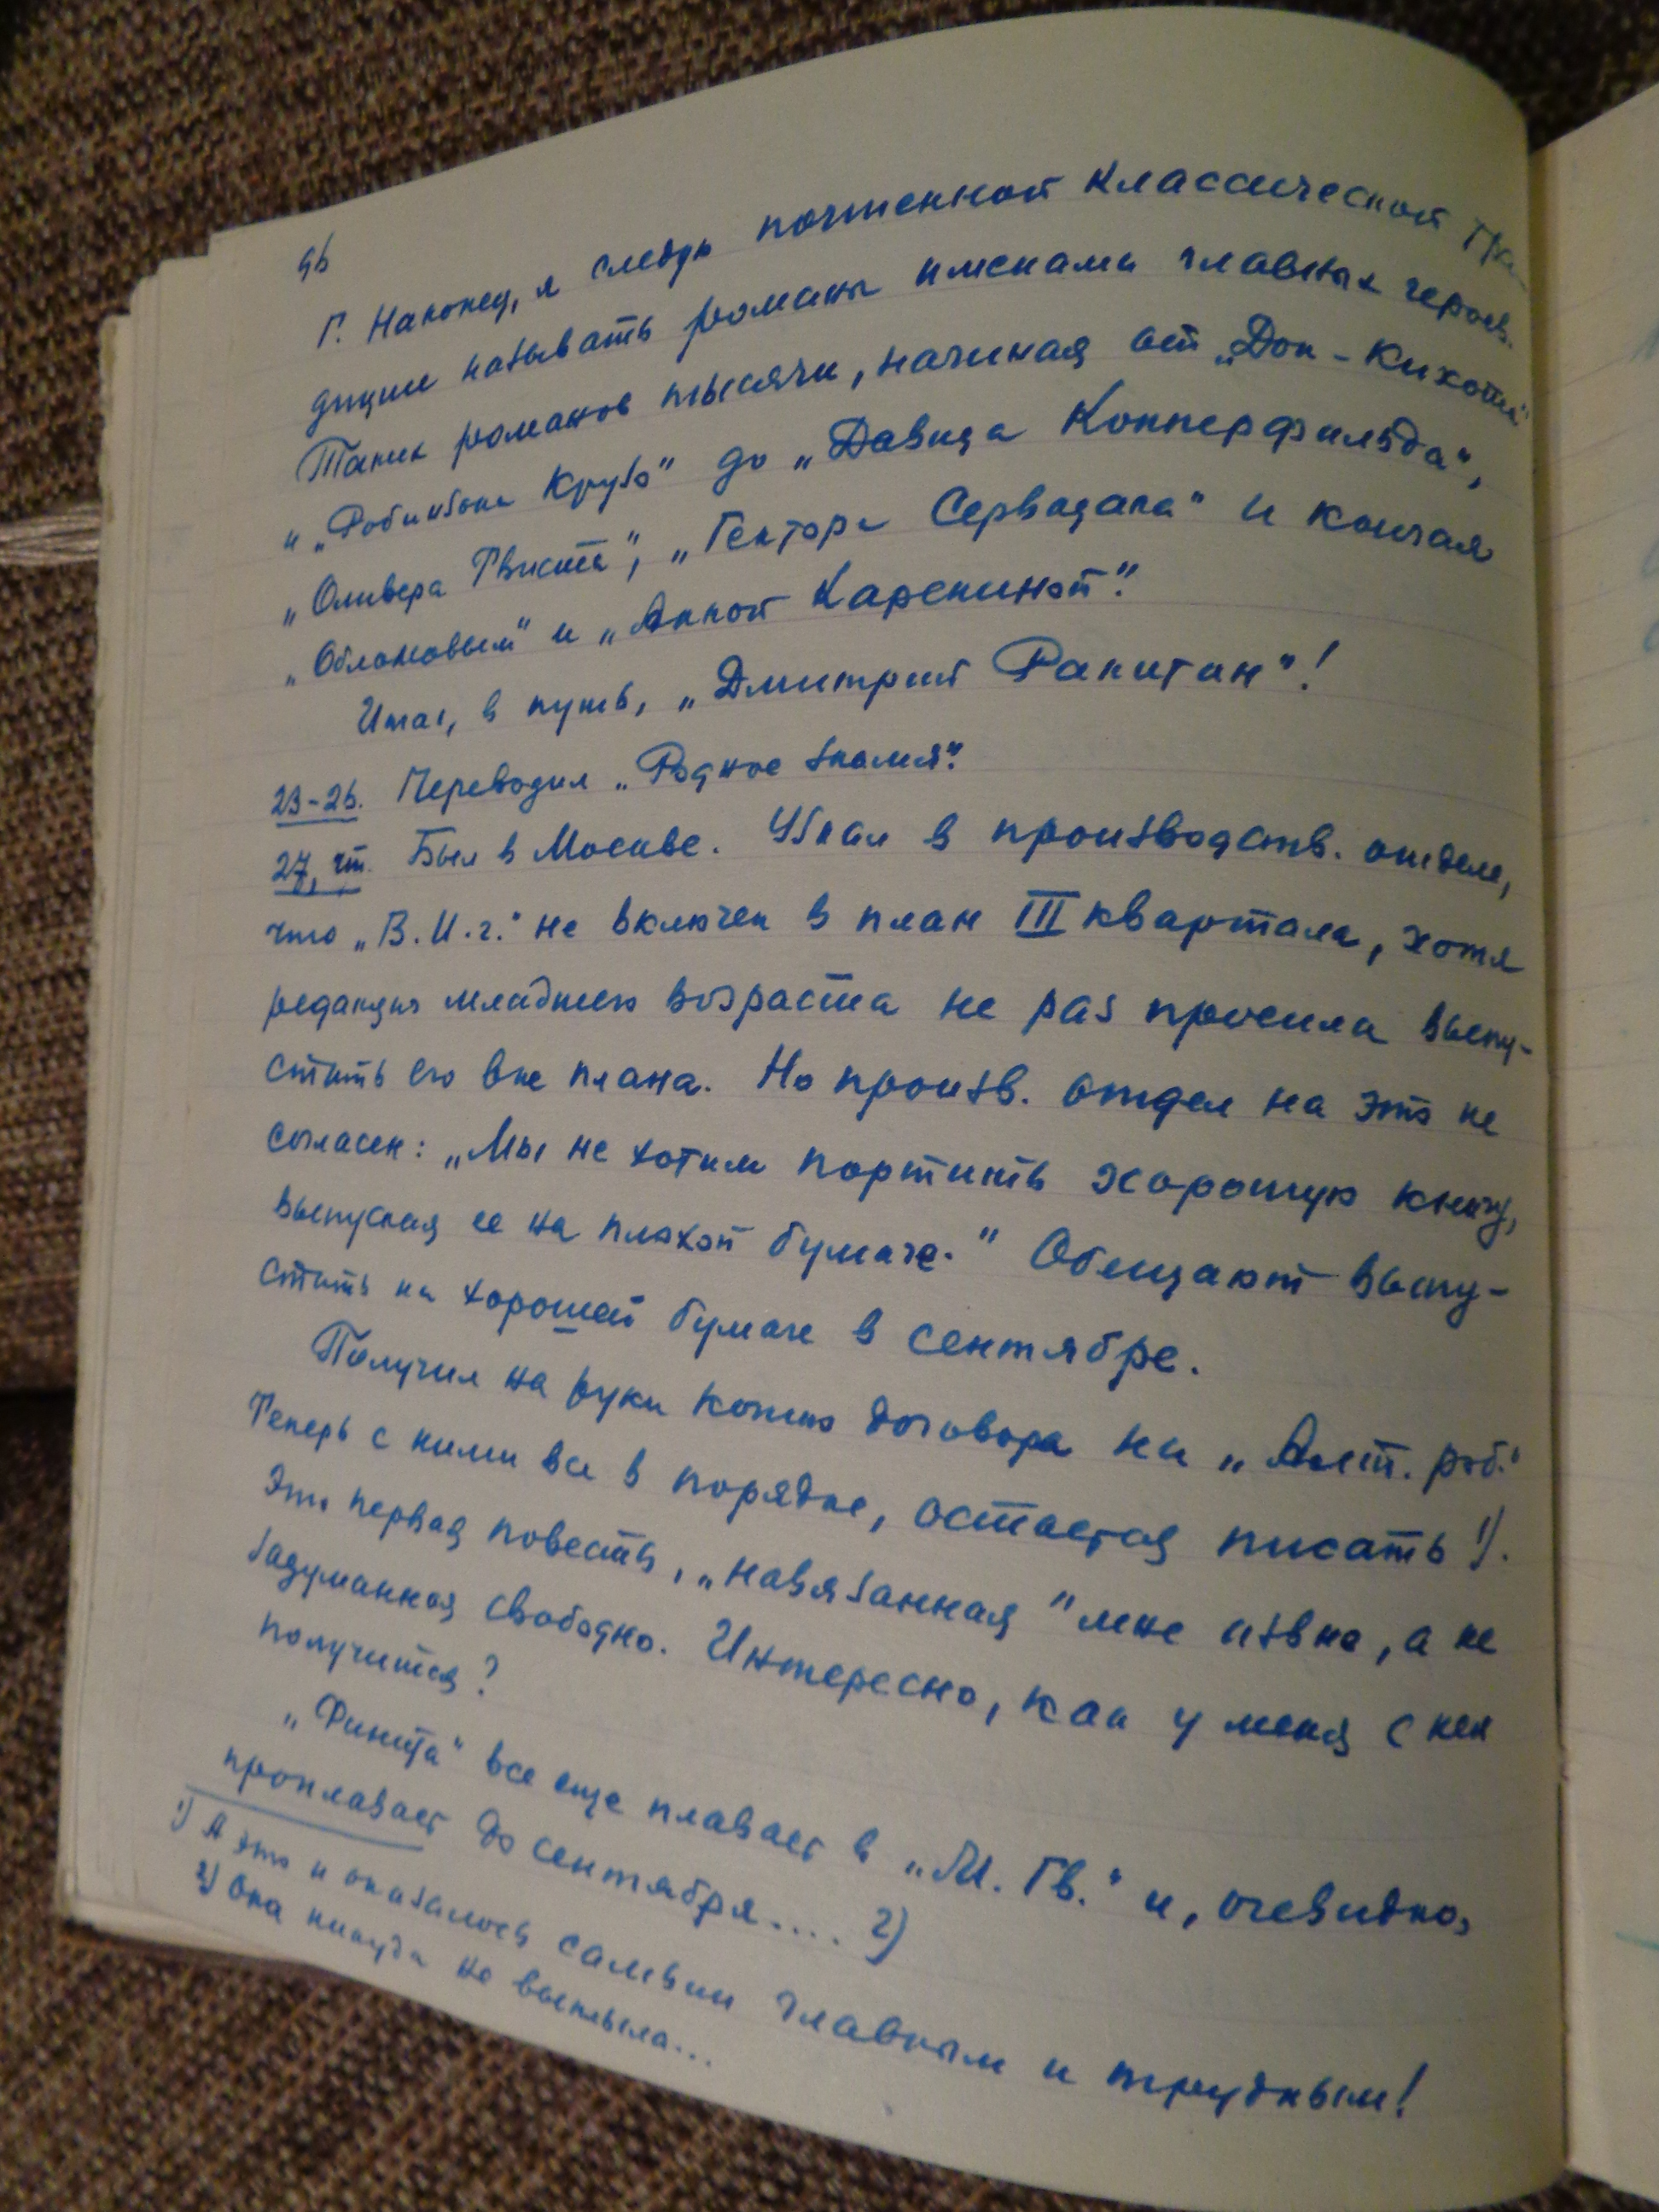 96
Г. Наконец, я следую почтенной классической тра-
диции называть романы именами главных героев.
Таких романов тысячи, начиная от „Дон-Кихота"
и „Робинзона Крузо" до „Давида Копперфильда",
„Оливера Твиста", „Гектора Сервадака" и кончая
„Обломовым" и „Анной Карениной".
Итак, в путь, „Дмитрий Ракитин"!
23-26. Переводил „Родное знамя".
27, чт. Был в Москве. Узнал в производств. отделе,
что „В. И. г." не включен в план III квартала, хотя
редакция младшего возраста не раз просила выпу-
стить его вне плана. Но произв. отдел на это не
согласен: „Мы не хотим портить хорошую книгу,
выпуская ее на плохой бумаге." Обещают выпу-
стить на хорошей бумаге в сентябре.
Получил на руки копию договора на „Алт. роб."
Теперь с ними все в порядке, остается писать 1).
Это первая повесть, „навязанная" мне извне, а не
задуманная свободно. Интересно, как у меня с ней
получится?
„Финита" все еще плавает в „М. Гв." и, очевидно,
проплавает до сентября.... 2)
1) А это и оказалось самым главным и трудным!
2) Она никуда не выплыла...